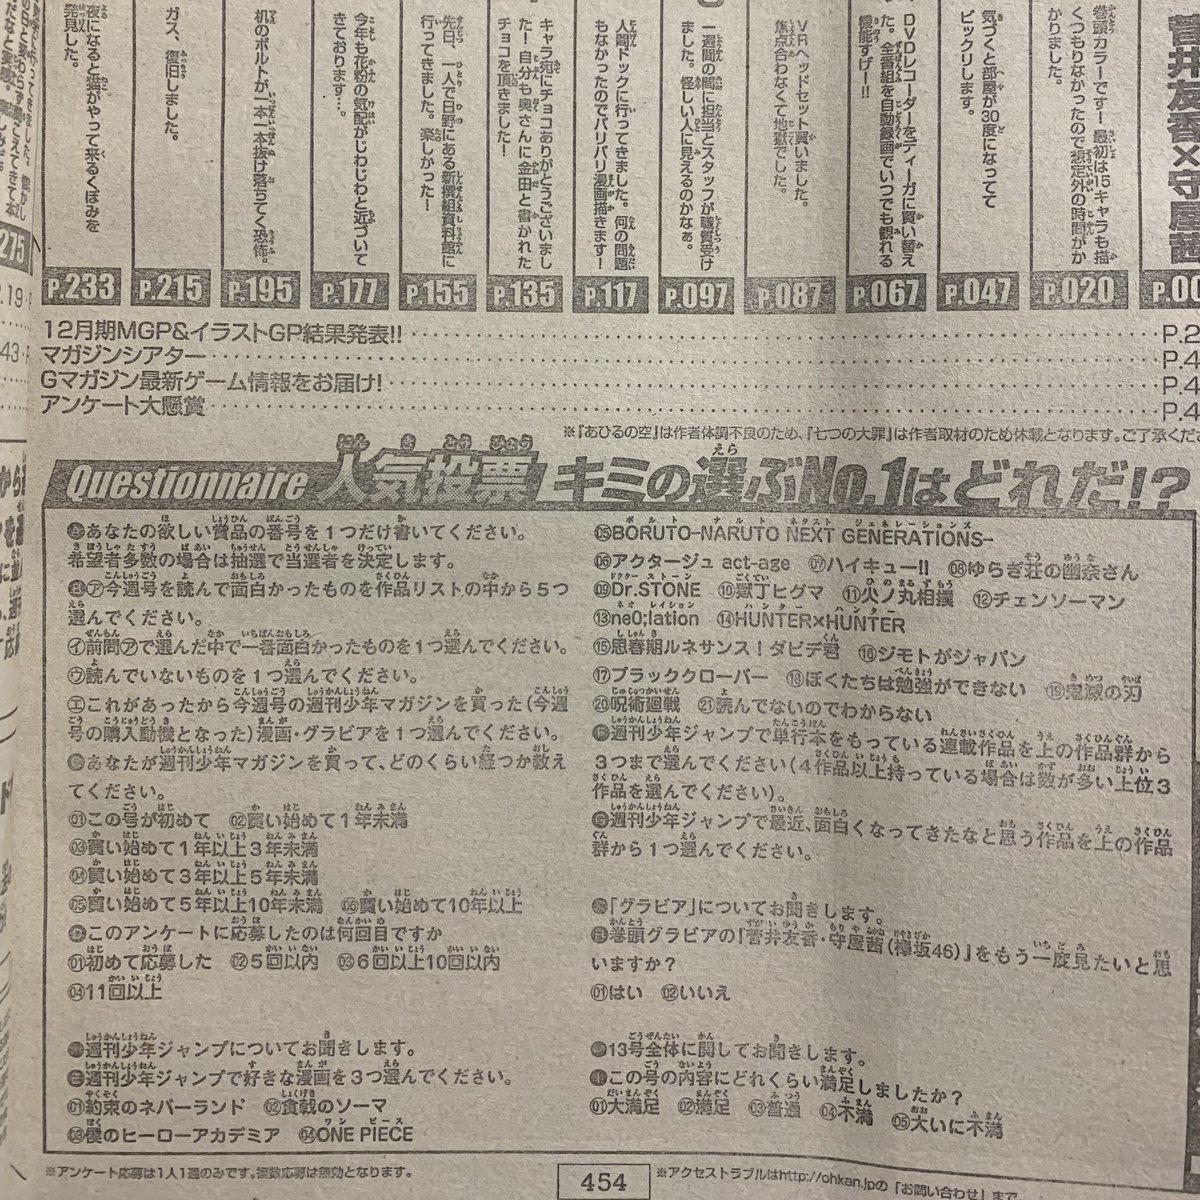 菅井友香×守屋茜
巻頭カラーです！最初は15キャラも描
くつもりなかったので想定外の時間がか
かりました。
気づくと部屋が30度になってて
ビックリします。
DVDレコーダーをディーガに買い替え
た。全番組を自動録画でいつでも観れる
機能すげー!!
VRヘッドセット買いました。
焦点合わなくて地獄でした。
一週間の間に担当とスタッフが職質受け
ました。怪しい人に見えるのかなぁ。
人間ドックに行ってきました。何の問題
もなかったのでバリバリ漫画描きます！
キャラ宛にチョコありがとうございまし
た！自分も奥さんに金田と書かれた
チョコを頂きました！
先日、一人で日野にある新撰組資料館に
行ってきました。楽しかった！
今年も花粉の気配がじわじわと近づいて
きております…。
机のボルトが一本一本抜け落ちてく恐怖。
ガス、復旧しました。
夜になると猫がやって来るくぼみを
発見した。
P.233 P.215 P.195 P.177 P.155 P.135 P.117 P.097 P.087 P.067 P.047 P.020
275
12月期MGP&イラストGP結果発表!!
マガジンシアター
Gマガジン最新ゲーム情報をお届け!
アンケート大懸賞
※『あひるの空』は作者体調不良のため、『七つの大罪』は作者取材のため休載となります。ご了承くださ
Questionnaire 人気投票 キミの選ぶNo.1はどれだ!?
あなたの欲しい賞品の番号を1つだけ書いてください。
希望者多数の場合は抽選で当選者を決定します。
㋐今週号を読んで面白かったものを作品リストの中から5つ
選んでください。
㋑前問㋐で選んだ中で一番面白かったものを1つ選んでください。
㋒読んでいないものを1つ選んでください。
㋓これがあったから今週号の週刊少年マガジンを買った(今週
号の購入動機となった)漫画・グラビアを1つ選んでください。
あなたが週刊少年マガジンを買って、どのくらい経つか教え
てください。
01この号が初めて 02買い始めて1年未満
03買い始めて1年以上3年未満
04買い始めて3年以上5年未満
05買い始めて5年以上10年未満 06買い始めて10年以上
このアンケートに応募したのは何回目ですか
01初めて応募した 02 5回以内 03 6回以上10回以内
04 11回以上
●週刊少年ジャンプについてお聞きします。
週刊少年ジャンプで好きな漫画を3つ選んでください。
01約束のネバーランド 02食戟のソーマ
03僕のヒーローアカデミア 04ONE PIECE
05BORUTO-NARUTO NEXT GENERATIONS-
06アクタージュ act-age 07ハイキュー!! 08ゆらぎ荘の幽奈さん
09Dr.STONE ⑩獄丁ヒグマ ⑪火ノ丸相撲 ⑫チェンソーマン
⑬ne0;lation ⑭HUNTER×HUNTER
⑮思春期ルネサンス！ダビデ君 ⑯ジモトがジャパン
⑰ブラッククローバー ⑱ぼくたちは勉強ができない ⑲鬼滅の刃
⑳呪術廻戦 ㉑読んでないのでわからない
週刊少年ジャンプで単行本をもっている連載作品を上の作品群から
3つまで選んでください(4作品以上持っている場合は数が多い上位3
作品を選んでください)。
週刊少年ジャンプで最近、面白くなってきたなと思う作品を上の作品
群から1つ選んでください。
●「グラビア」についてお聞きします。
巻頭グラビアの「菅井友香・守屋茜(欅坂46)」をもう一度見たいと思
いますか？
01はい 02いいえ
●13号全体に関してお聞きします。
この号の内容にどれくらい満足しましたか？
01大満足 02満足 03普通 04不満 05大いに不満
※アンケート応募は1人1通のみです。複数応募は無効となります。
454
※アクセストラブルはhttp://ohkan.jpの「お問い合わせ」まで